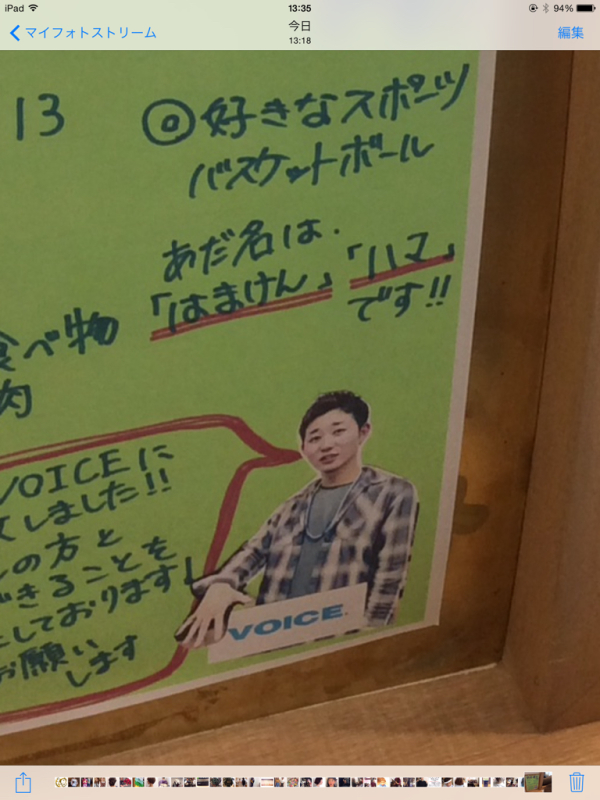 iPad
13:35
94%
マイフォトストリーム
今日
13:18
編集
13
◎好きなスポーツ
バスケットボール
あだ名は、
「はまけん」「ハマ」
です!!
食べ物
肉
VOICEに
しました!!
の方と
できることを
しております!
お願い
します
VOICE.